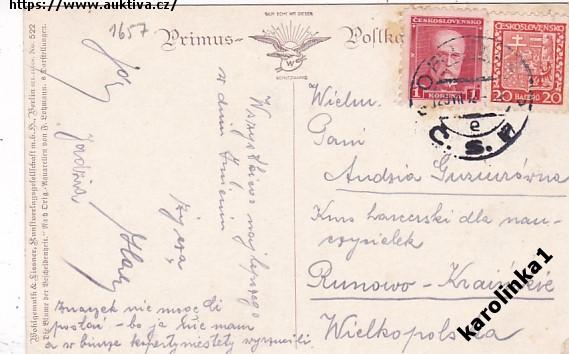 https://www.auktiva.cz/
1657
NUR ECHT MIT DIESEM
Primus-
Postka
W
SCHUTZMARKE
Wohlgemuth & Lissner, Kunstverlagsgesellschaft m.b.H., Berlin No. 522
"Die Blume der Bescheidenheit." Nach Orig.-Aquarellen von F. Lohmann.
ČESKOSLOVENSKO
1 KORUNA 1
ČESKOSLOVENSKO
20 HALÉŘŮ 20
e
Č. S. P.
Wszystkiego najlepszego
w dniu Imienin
życzą
Jadzia
Znaczek nie mogę Ci
posłać - bo ja nie mam
a w biurze koperty niestety wyrzucili
Wielm.
Pani
Andzia
Kurs dla nau-
czycielek
Runowo - Kraińskie
Wielkopolska
karolinka1